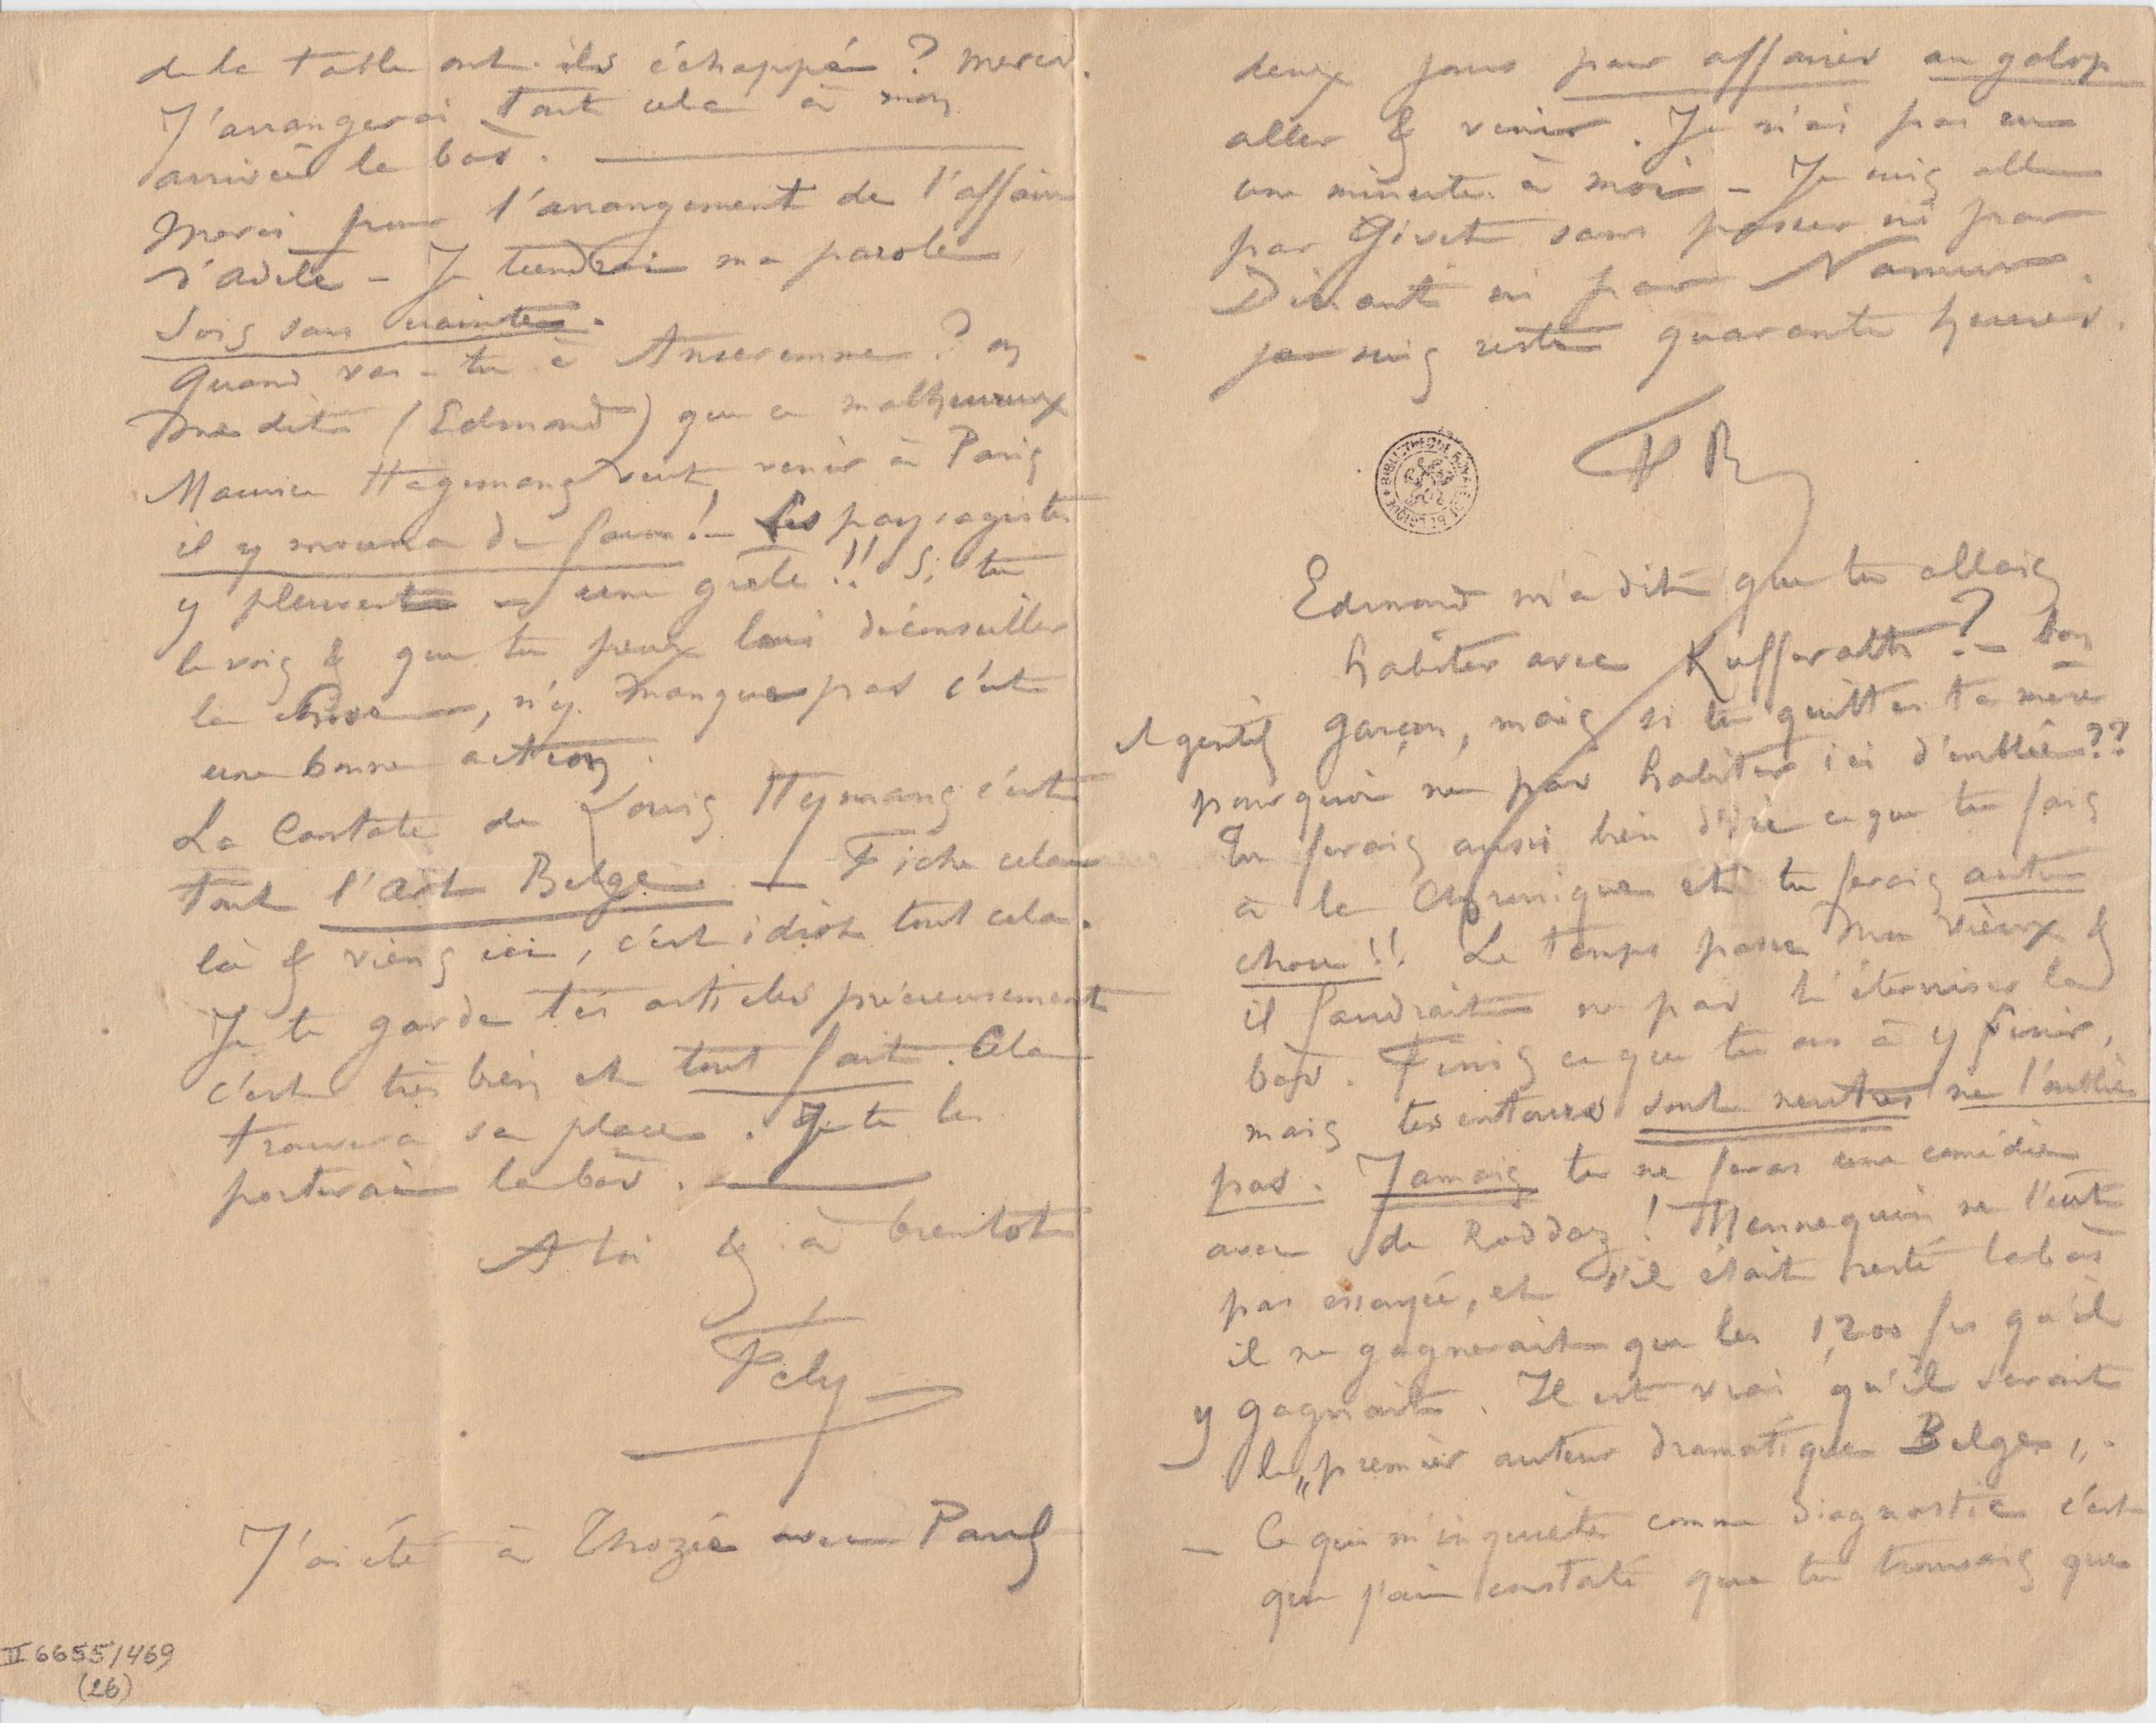 de la table ont-ils échappé ? merci.
J'arrangerai tout cela à mon
arrivée la bas.
Merci pour l'arrangement de l'affaire
d'adèle – Je tiendrai ma parole
Sois sans crainte.
Quand vas-tu à Anseremme ? on
me dit (Edmond) que ce malheureux
Maurice Hagemans veut venir à Paris
il y mourra de faim ! – les paysagistes
y pleuvent – une grèle !! Si tu
le vois & que tu peux lui déconseiller
la chose, n'y manque pas c'est
une bonne action.
La Cantate de Louis Hymans c'est
tout l'art Belge. – Fiche cela
là & viens ici, c'est idiot tout cela.
Je te garde tes articles précieusement
c'est très bien et tout fait. Cela
trouvera sa place. Je te les
porterai la bas.
A toi & à bientot
Fély
J'ai été à Thozée avec Paul
II 6655/469
(26)
deux jours pour affaires au galop
aller & venir. Je n'ai pas eu
une minute à moi – Je suis allé
par Givet sans passer ni par
Dinant ni par Namur.
j'y suis resté quarante heures.
FR
BIBLIOTHEQUE ROYALE DE BELGIQUE
Edmond m'a dit que tu allais
habiter avec Kufferath ? – bon
et gentil garçon, mais si tu quittes ta mère
pourquoi ne pas habiter ici d'emblée ??
Tu ferais aussi bien d'ici ce que tu fais
à la Chronique et tu ferais autre
chose !! Le temps passe mon vieux &
il faudrait ne pas t'éterniser la
bas. Finis ce que tu as à y finir,
mais tes entours sont neutres ne l'oublie
pas. Jamais tu ne feras une comédie
avec de Roddaz ! Hennequin ne l'eut
pas essayé, et s'il était resté labas
il ne gagnerait que les 1,200 frs qu'il
y gagnait. Il est vrai qu'il serait
le „premier auteur dramatique Belge„.
– Ce qui m'inquiète comme diagnostic c'est
que j'ai constaté que tu trouvais que